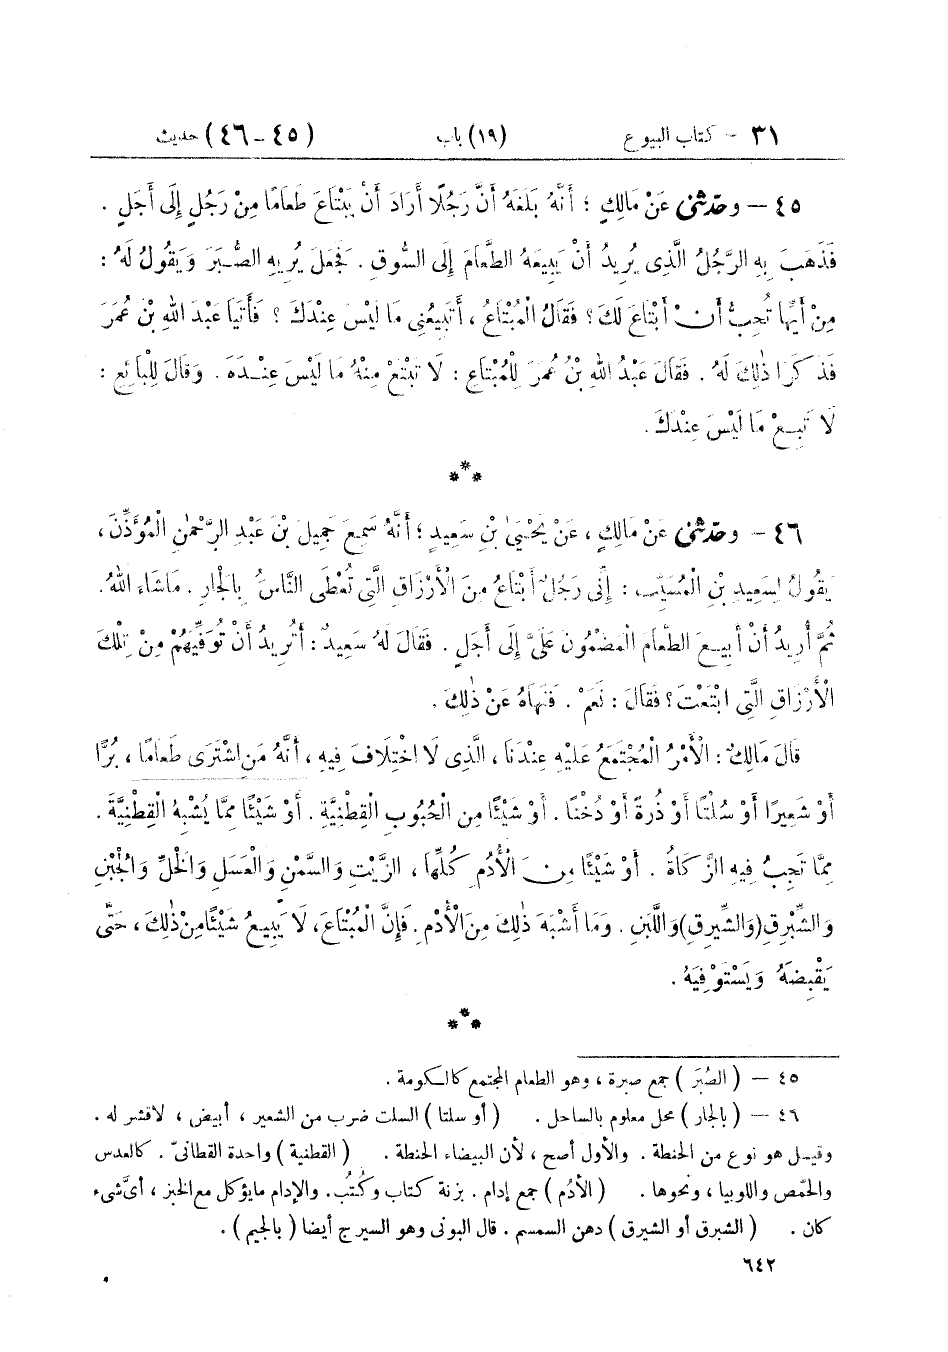 ٣١ – كتاب البيوع (١٩) باب (٤٥ – ٤٦) حديث
٤٥ – وحدثني عَنْ مَالِكٍ ؛ أَنَّهُ بَلَغَهُ أَنَّ رَجُلًا أَرَادَ أَنْ يَبْتَاعَ طَعَامًا مِنْ رَجُلٍ إِلَى أَجَلٍ .
فَذَهَبَ بِهِ الرَّجُلُ الَّذِى يُرِيدُ أَنْ يَبِيعَهُ الطَّعَامَ إِلَى السُّوقِ . فَجَعَلَ يُرِيهِ الصُّبَرَ وَيَقُولُ لَهُ :
مِنْ أَيِّهَا تُحِبُّ أَنْ أَبْتَاعَ لَكَ ؟ فَقَالَ الْمُبْتَاعُ ، أَتَبِيعُنِى مَا لَيْسَ عِنْدَكَ ؟ فَأَتَيَا عَبْدَ اللهِ بْنَ عُمَرَ
فَذَكَرَا ذٰلِكَ لَهُ . فَقَالَ عَبْدُ اللهِ بْنُ عُمَرَ لِلْمُبْتَاعِ : لَا تَبْتَعْ مِنْهُ مَا لَيْسَ عِنْدَهُ . وَقَالَ لِلْبَائِعِ :
لَا تَبِعْ مَا لَيْسَ عِنْدَكَ .
***
٤٦ – وحدثني عَنْ مَالِكٍ ، عَنْ يَحْيَىٰ بْنِ سَعِيدٍ ؛ أَنَّهُ سَمِعَ جَمِيلَ بْنَ عَبْدِ الرَّحْمٰنِ الْمُؤَذِّنَ ،
يَقُولُ لِسَعِيدِ بْنِ الْمُسَيَّبِ : إِنِّى رَجُلٌ أَبْتَاعُ مِنَ الْأَرْزَاقِ الَّتِى تُعْطَى النَّاسُ بِالْجَارِ . مَا شَاءَ اللهُ .
ثُمَّ أُرِيدُ أَنْ أَبِيعَ الطَّعَامَ الْمَضْمُونَ عَلَىَّ إِلَى أَجَلٍ . فَقَالَ لَهُ سَعِيدٌ : أَتُرِيدُ أَنْ تُوَفِّيَهُمْ مِنْ تِلْكَ
الْأَرْزَاقِ الَّتِى ابْتَعْتَ ؟ فَقَالَ : نَعَمْ . فَنَهَاهُ عَنْ ذٰلِكَ .
قَالَ مَالِكٌ : الْأَمْرُ الْمُجْتَمَعُ عَلَيْهِ عِنْدَنَا ، الَّذِى لَا اخْتِلَافَ فِيهِ ، أَنَّهُ مَنِ اشْتَرَى طَعَامًا ، بُرًّا
أَوْ شَعِيرًا أَوْ سُلْتًا أَوْ ذُرَةً أَوْ دُخْنًا . أَوْ شَيْئًا مِنَ الْحُبُوبِ الْقِطْنِيَّةِ . أَوْ شَيْئًا مِمَّا يُشْبِهُ الْقِطْنِيَّةَ .
مِمَّا تَجِبُ فِيهِ الزَّكَاةُ . أَوْ شَيْئًا مِنَ الْأُدُمِ كُلِّهَا ، الزَّيْتِ وَالسَّمْنِ وَالْعَسَلِ وَالْخَلِّ وَالْجُبْنِ
وَالشَّبْرِقِ (وَالشِّيرِقِ) وَاللَّبَنِ . وَمَا أَشْبَهَ ذٰلِكَ مِنَ الْأُدْمِ . فَإِنَّ الْمُبْتَاعَ ، لَا يَبِيعُ شَيْئًا مِنْ ذٰلِكَ ، حَتَّى
يَقْبِضَهُ وَيَسْتَوْفِيَهُ .
***
٤٥ – ( الصُّبَرَ ) جمع صبرة ، وهو الطعام المجتمع كالكومة .
٤٦ – ( بالجار ) محل معلوم بالساحل . ( أو سلتا ) السلت ضرب من الشعير ، أبيض ، لاقشر له .
وقيل هو نوع من الحنطة . والأول أصح ، لأن البيضاء الحنطة . ( القطنية ) واحدة القطانىّ . كالعدس
والحمّص واللوبيا ، ونحوها . ( الأدُم ) جمع إدام . بزنة كتاب وكُتُب . والإدام مايؤكل مع الخبز ، أىّ شىء
كان . ( الشبرق أو الشيرق ) دهن السمسم . قال البونى وهو السيرج أيضا ( بالجيم ) .
٦٤٢